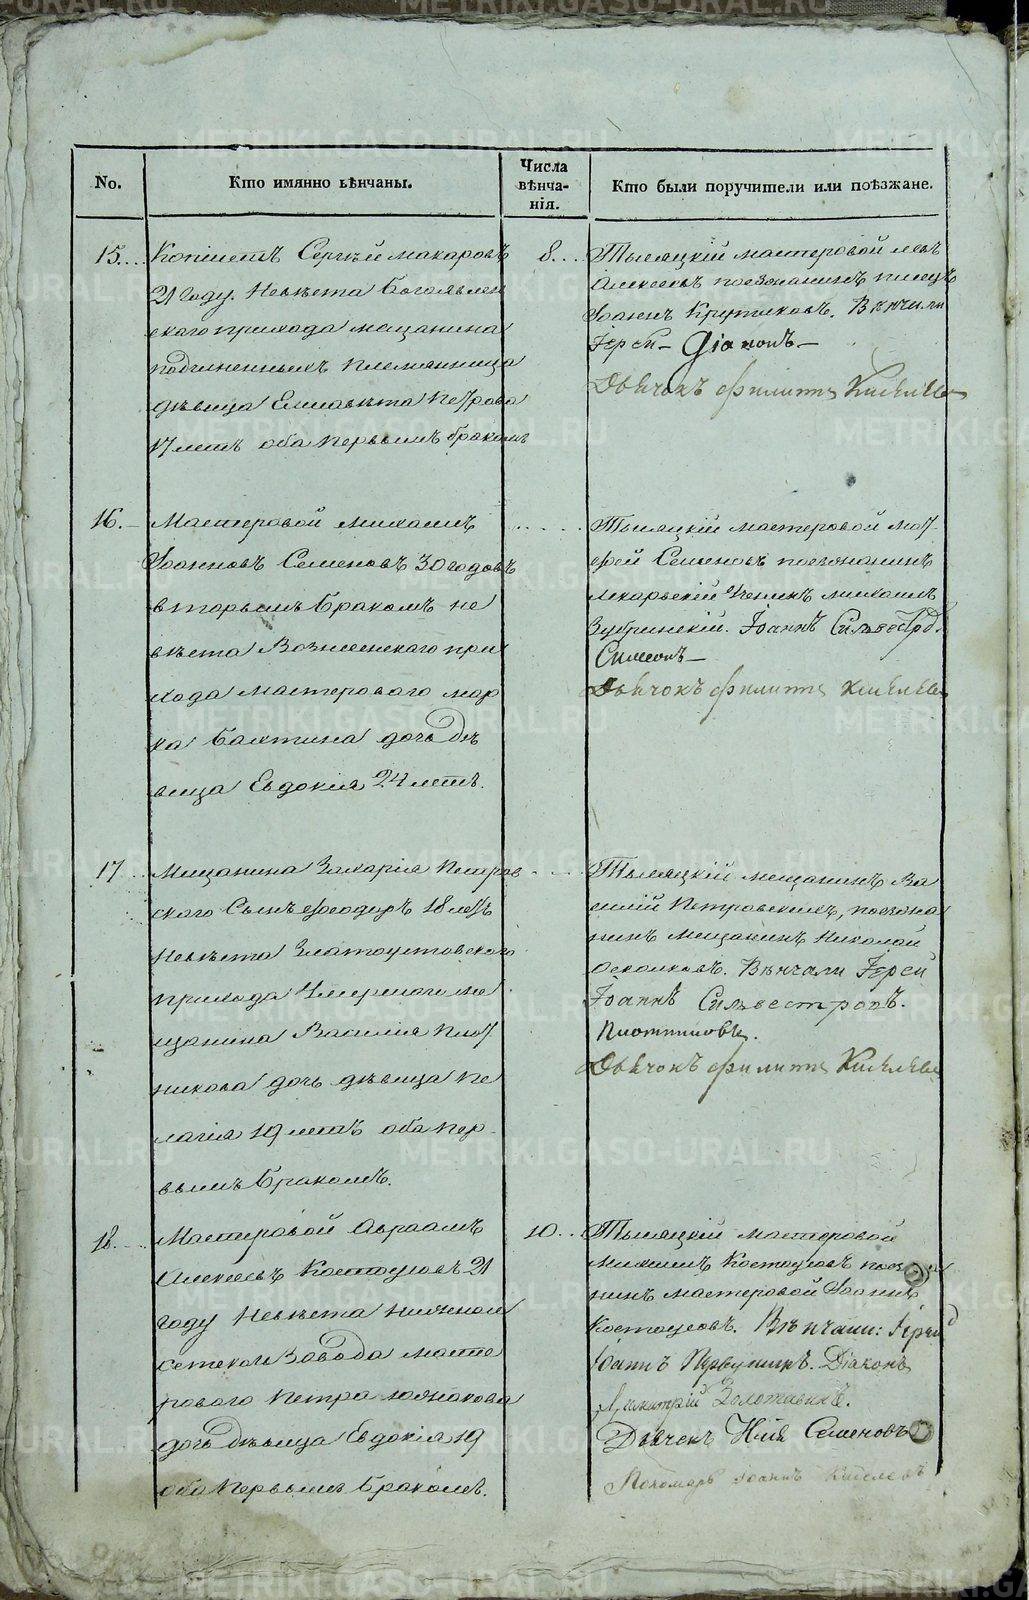 No.
Кто имянно вѣнчаны.
Числа
вѣнча-
нія.
Кто были поручители или поѣзжане.
15.
Копіистъ Сергѣй Макаровъ
21 году. Невѣста Богоявлен
скаго прихода мещанина
племянница
дѣвица Елисавета Петрова
17 летъ оба первымъ бракомъ
8.
Тысяцкій мастеровой Левъ
Алексеевъ поезжанинъ писецъ
Іоаннъ Крутиковъ. Вѣнчали
Іерей – Діаконъ –
Дьячокъ Филиппъ Киселевъ
16.
Мастеровой Михаилъ
Іоанновъ Семеновъ 30 годовъ
вторымъ бракомъ не
вѣста Вознесенскаго при
хода мастероваго Мар
ка дочь дѣ
вица Евдокія 24 летъ.
Тысяцкій мастеровой
Семеновъ поезжанинъ
лекарьскій ученикъ Михаилъ
Зубринскій. Іоаннъ
Симеонъ –
Дьячокъ Филиппъ Киселевъ
17
Мещанина Захарія Петров
скаго Сынъ Феодоръ 18 летъ
Невѣста Златоустовскаго
прихода Умершаго ме
щанина Василія Плот
никова дочь дѣвица Пе
лагія 19 летъ оба пер-
вымъ бракомъ.
Тысяцкій мещанинъ Ва
силій Петровскихъ, поезжа
нинъ мещанинъ Николай
Осколковъ. Вѣнчали Іерей
Іоаннъ Сильвестровъ.
Дьячокъ Филиппъ Киселевъ
18.
Мастеровой Авраамъ
Алексеевъ Костоусовъ 21
году Невѣста Нижнои
сетскаго Завода масте
роваго Петра Южакова
дочь дѣвица Евдокія 19
оба первымъ бракомъ.
10.
Тысяцкій мастеровой
Михаилъ Костоусовъ поезжа
нинъ мастеровой Іоаннъ
Костоусовъ. Вѣнчали: Іерей
Іоаннъ Первушинъ. Діаконъ
Димитрій Золотавинъ.
Дьячекъ Илія Семеновъ
Пономарь Іоаннъ Киселевъ
METRIKI.GASO-URAL.RU